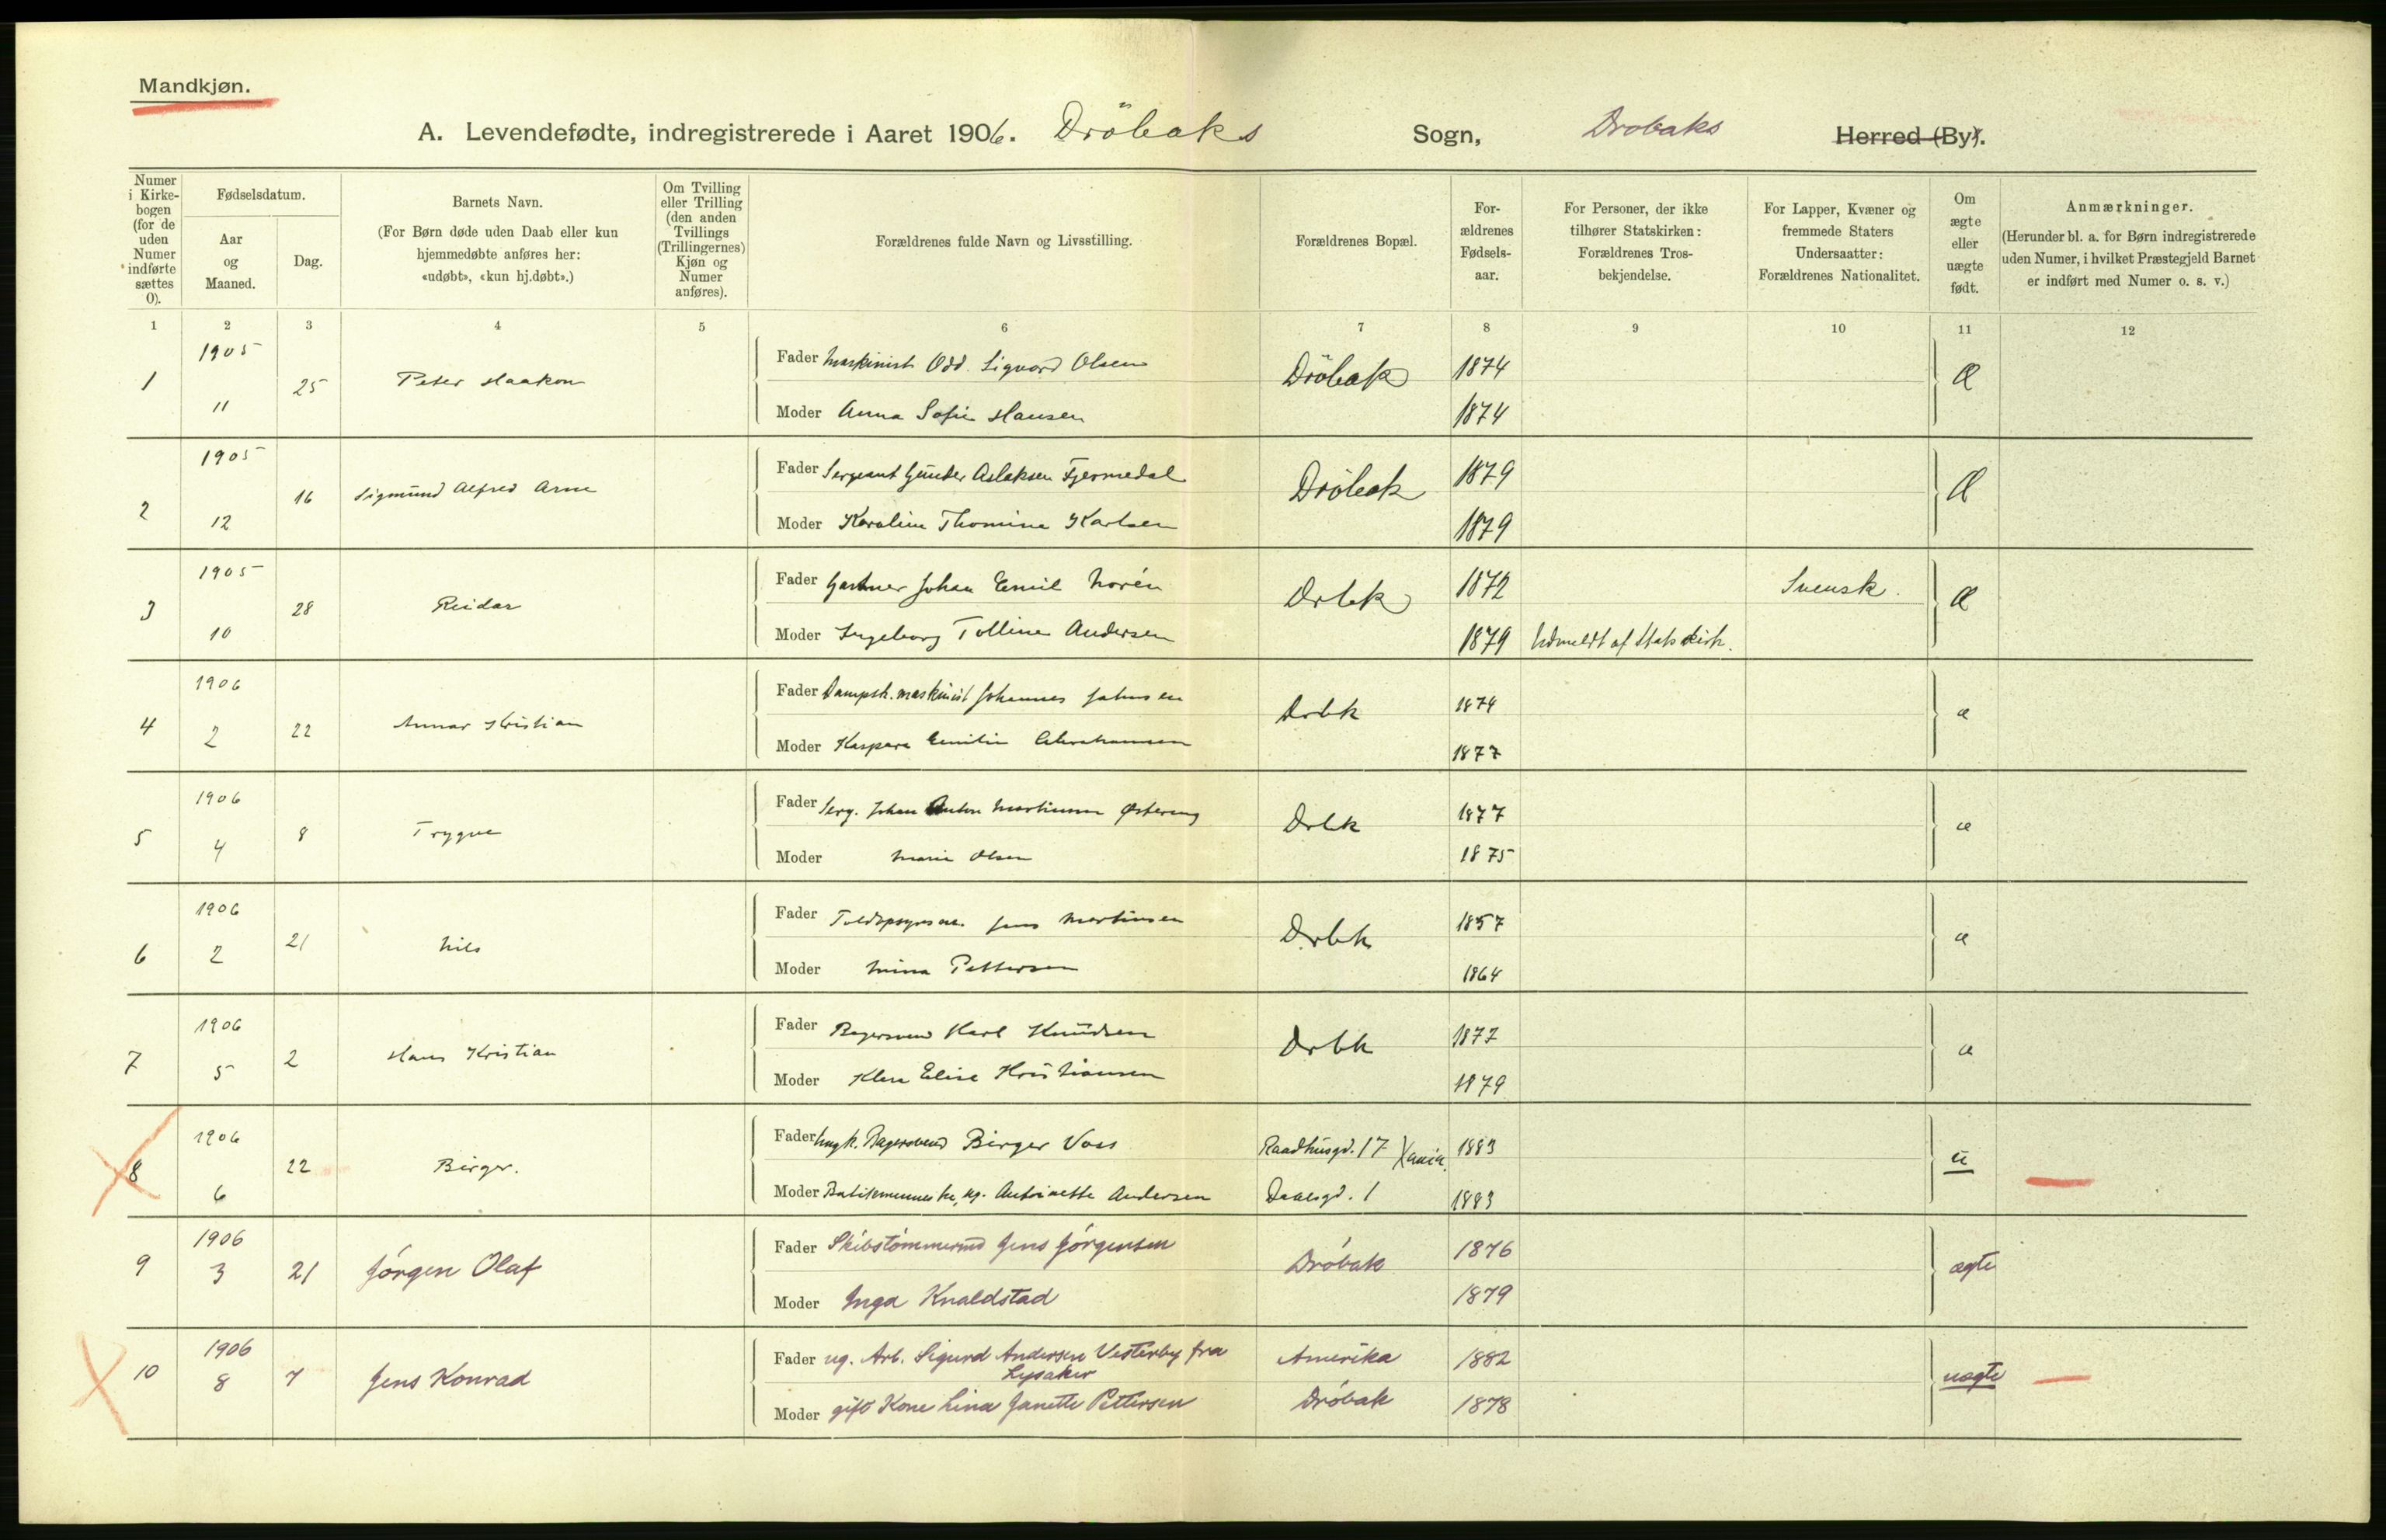 Mandkjøn.
A. Levendefødte, indregistrerede i Aaret 1906. Dröbaks Sogn, Drobaks Herred (By).
Numer i Kirkebogen (for de uden Numer indførte sættes 0).
Fødselsdatum.
Aar og Maaned.
Dag.
Barnets Navn.
(For Børn døde uden Daab eller kun hjemmedøbte anføres her: «udøbt», «kun hj.døbt».)
Om Tvilling eller Trilling (den anden Tvillings (Trillingernes) Kjøn og Numer anføres).
Forældrenes fulde Navn og Livsstilling.
Forældrenes Bopæl.
Forældrenes Fødselsaar.
For Personer, der ikke tilhører Statskirken: Forældrenes Trosbekjendelse.
For Lapper, Kvæner og fremmede Staters Undersaatter: Forældrenes Nationalitet.
Om ægte eller uægte født.
Anmærkninger.
(Herunder bl. a. for Børn indregistrerede uden Numer, i hvilket Præstegjeld Barnet er indført med Numer o. s. v.)
1 2 3 4 5 6 7 8 9 10 11 12
1 1905 11 25 Peter Haakon Fader Maskinist Odd Sigvard Olsen Dröbak 1874 Æ
Moder Anna Sofie Hansen 1874
2 1905 12 16 Sigmund Alfred Arne Fader Sergeant Gunder Aslaksen Fjermedal Dröbak 1879 Æ
Moder Karoline Thomine Karlsen 1879
3 1905 10 28 Reidar Fader Gartner Johan Emil Norén Drbk 1872 Svensk. Æ
Moder Ingeborg Tolline Andersen 1879 Udmeldt af Statskirk.
4 1906 2 22 Annar Kristian Fader Dampsk.maskinist Johannes Johnsen Drbk 1874 æ
Moder Kaspara Emilie Abrahamsen 1877
5 1906 4 8 Trygve Fader Serg. Johan Anton Martinsen Østereng Drbk 1877 æ
Moder Marie Olsen 1875
6 1906 2 21 Nils Fader Jens Martinsen Drbk 1857 æ
Moder Mina Pettersen 1864
7 1906 5 2 Hans Kristian Fader Bagersvend Karl Knudsen Drbk 1877 æ
Moder Elise Kristiansen 1879
8 1906 6 22 Birger. Fader Ungk. Bagersvend Birger Voss Raadhusgd. 17 Xania. 1883 u
Moder ug. Antoinette Andersen Daalsgd. 1 1883
9 1906 3 21 Jörgen Olaf Fader Skibstömmermd Jens Jörgensen Dröbak 1876 ægte
Moder Inga Knaldstad 1879
10 1906 8 7 Jens Konrad Fader ug. Arb. Sigurd Andersen Vesterby fra Lysaker Amerika 1882 uægte
Moder gift Kone Lina Janette Pettersen Dröbak 1878